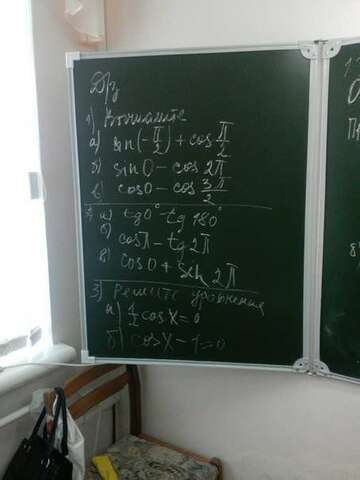 Д/з
1) Вычислите
а) sin(-π/2) + cos π/2
б) sin 0 - cos 2π
в) cos 0 - cos 3π/2
2) а) tg 0° - tg 180°
б) cos π - tg 2π
в) cos 0 + sin 2π
3) Решите уравнения
а) 1/2 cos x = 0
б) cos x - 1 = 0